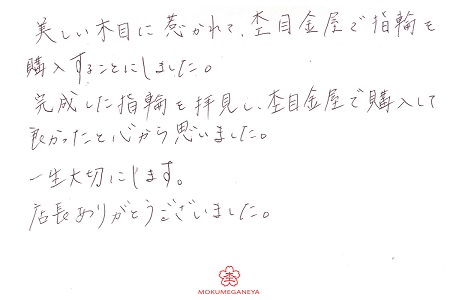 美しい木目に惹かれて、杢目金屋で指輪を
購入することにしました。
完成した指輪を拝見し、杢目金屋で購入して
良かったと心から思いました。
一生大切にします。
店長ありがとうございました。
MOKUMEGANEYA